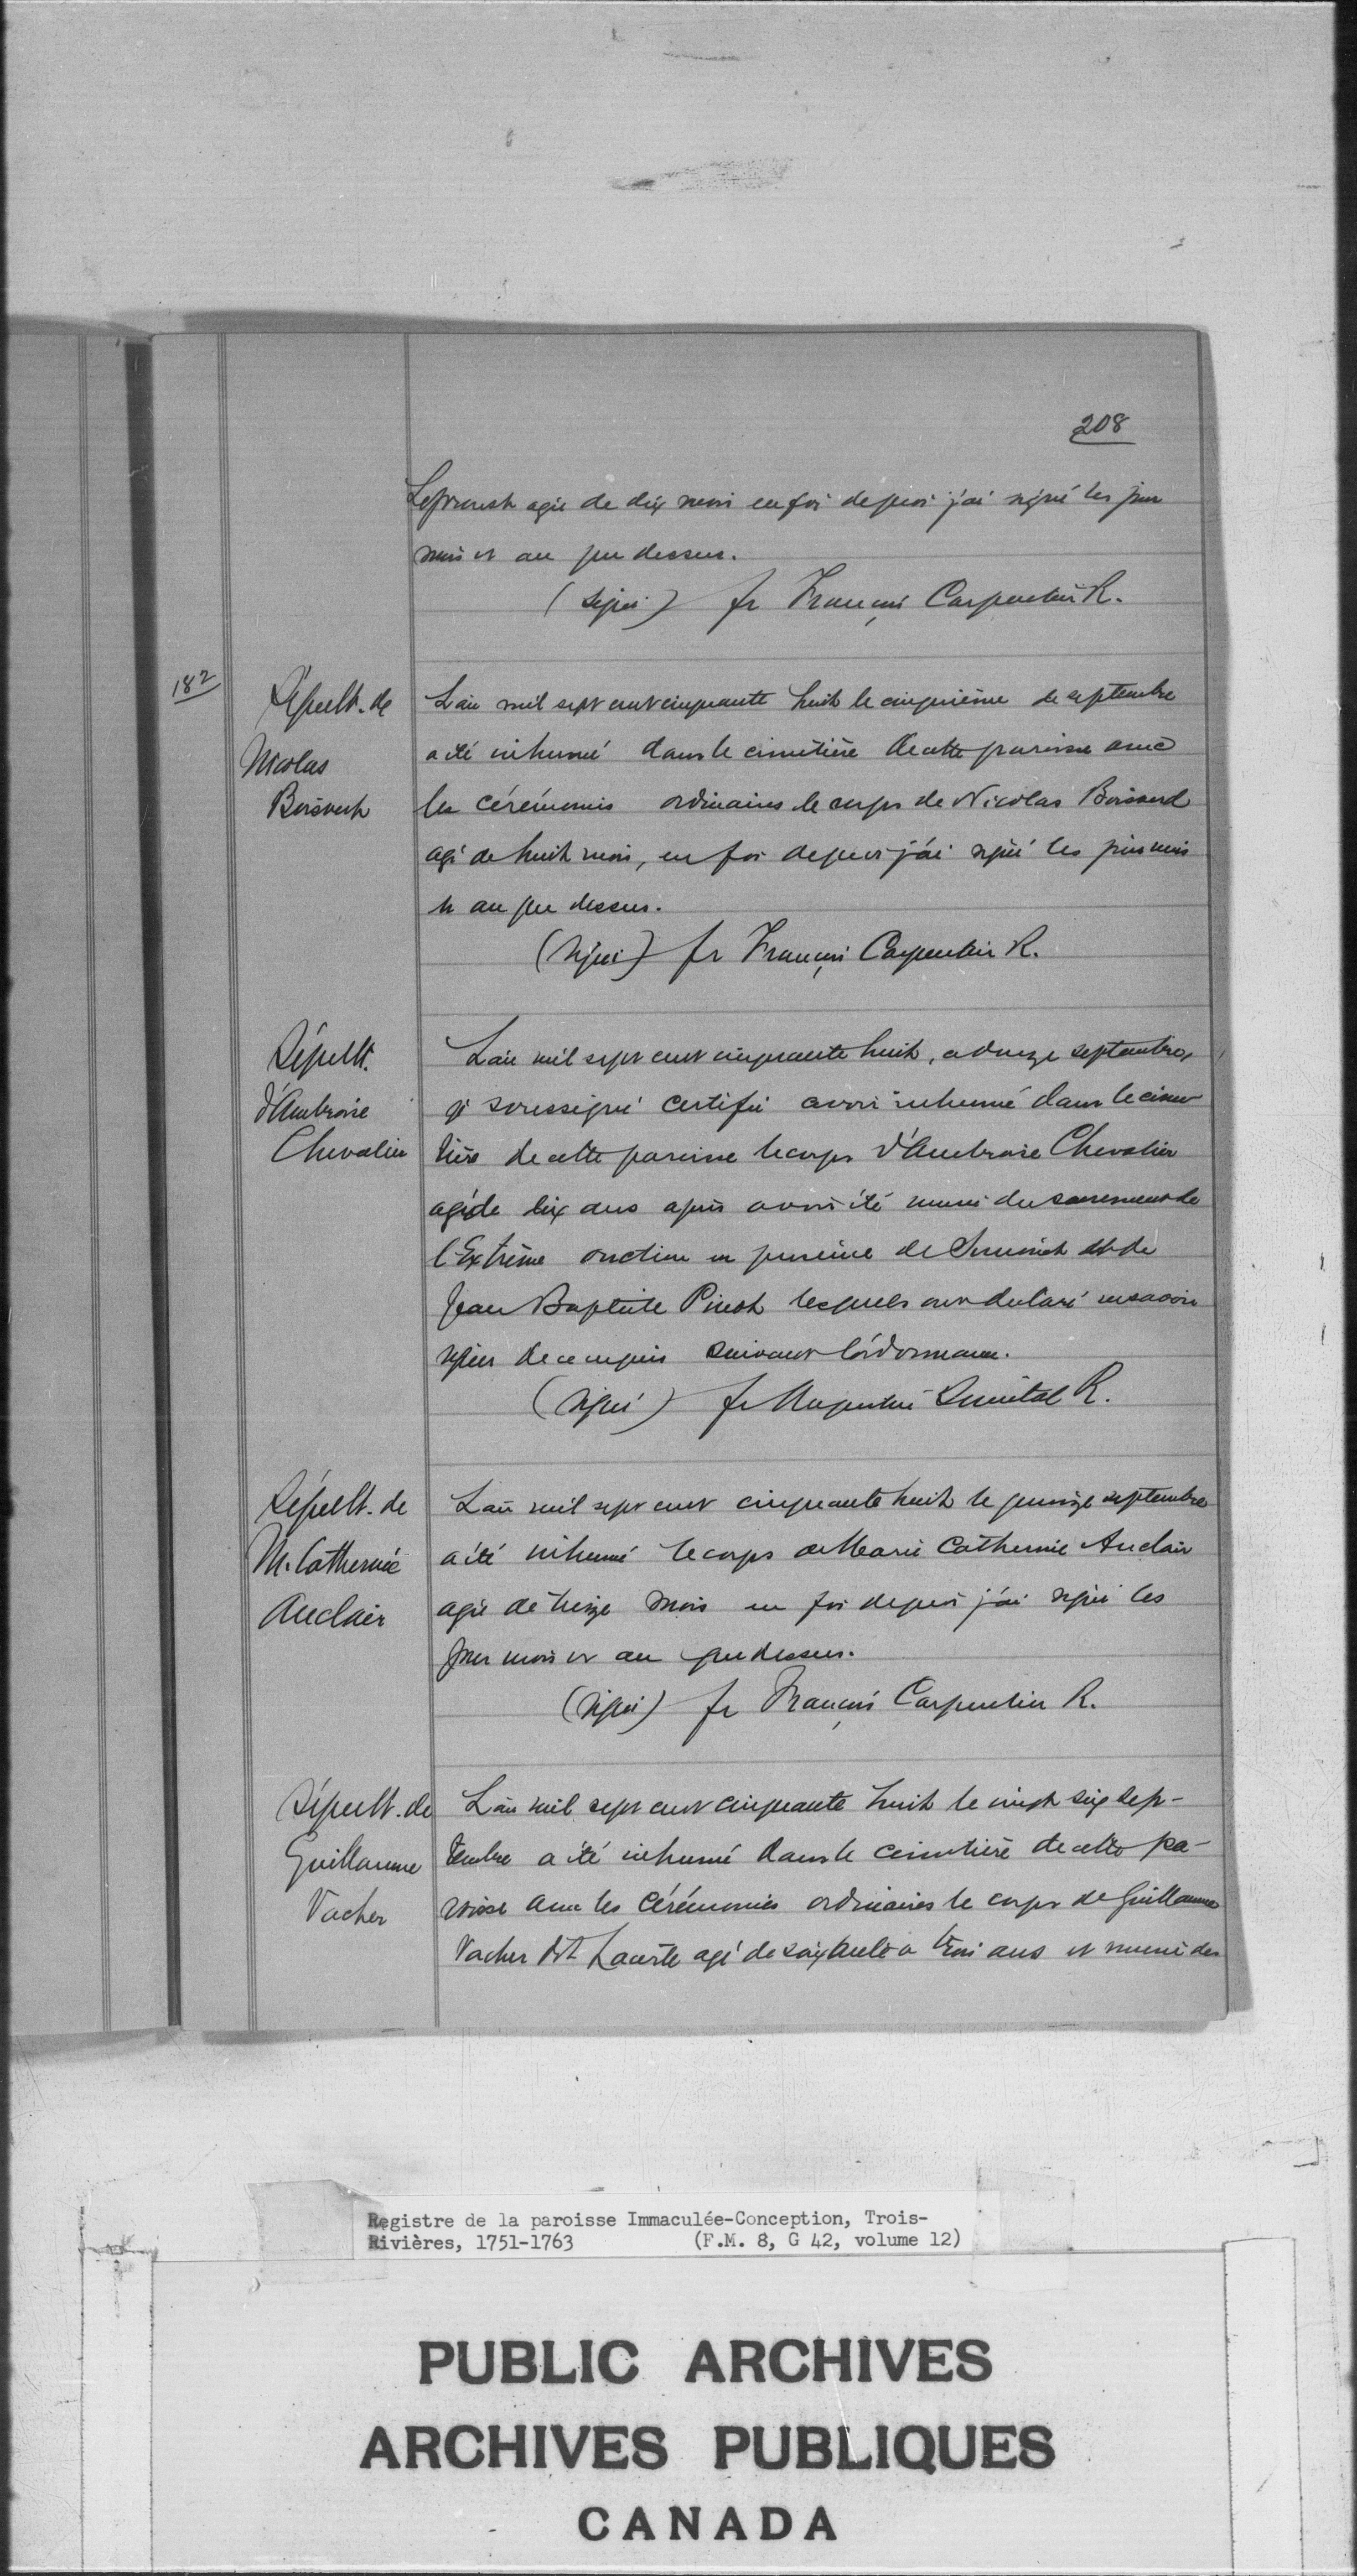 208
agée de dix mois en foi de quoi j'ai signé les jour
mois et an que dessus.
(signé) fr François Carpentier R.
182
Sépult. de
Nicolas
Boisvert
L'an mil sept cent cinquante huit le cinquième de septembre
a été inhumé dans le cimetière de cette paroisse avec
les cérémonies ordinaires le corps de Nicolas Boisverd
agé de huit mois, en foi de quoi j'ai signé les jour mois
et an que dessus.
(signé) fr François Carpentier R.
Sépult.
d'Ambroise
Chevalier
L'an mil sept cent cinquante huit, septembre,
je soussigné certifie avoir inhumé dans le cime
tière de cette paroisse le corps d'Ambroise Chevalier
agé de dix ans après avoir été muni du sacrement de
l'Extrême onction en présence de et de
Jean Baptiste Pinot lesquels ont déclaré ne savoir
signer de ce enquis suivant l'ordonnance.
(signé) fr Augustin Quintal R.
Sépult. de
M. Catherine
Auclair
L'an mil sept cent cinquante huit le quinze septembre
a été inhumé le corps de Marie Catherine Auclair
agée de treize mois en foi de quoi j'ai signé les
jour mois et an que dessus.
(signé) fr François Carpentier R.
Sépult. de
Guillaume
Vacher
L'an mil sept cent cinquante huit le vingt six sep-
tembre a été inhumé dans le cimetière de cette pa-
roisse avec les cérémonies ordinaires le corps de Guillaume
Vacher dit Lacerte agé de soixante et trois ans et muni des
Registre de la paroisse Immaculée-Conception, Trois-
Rivières, 1751-1763 (F.M. 8, G 42, volume 12)
PUBLIC ARCHIVES
ARCHIVES PUBLIQUES
CANADA